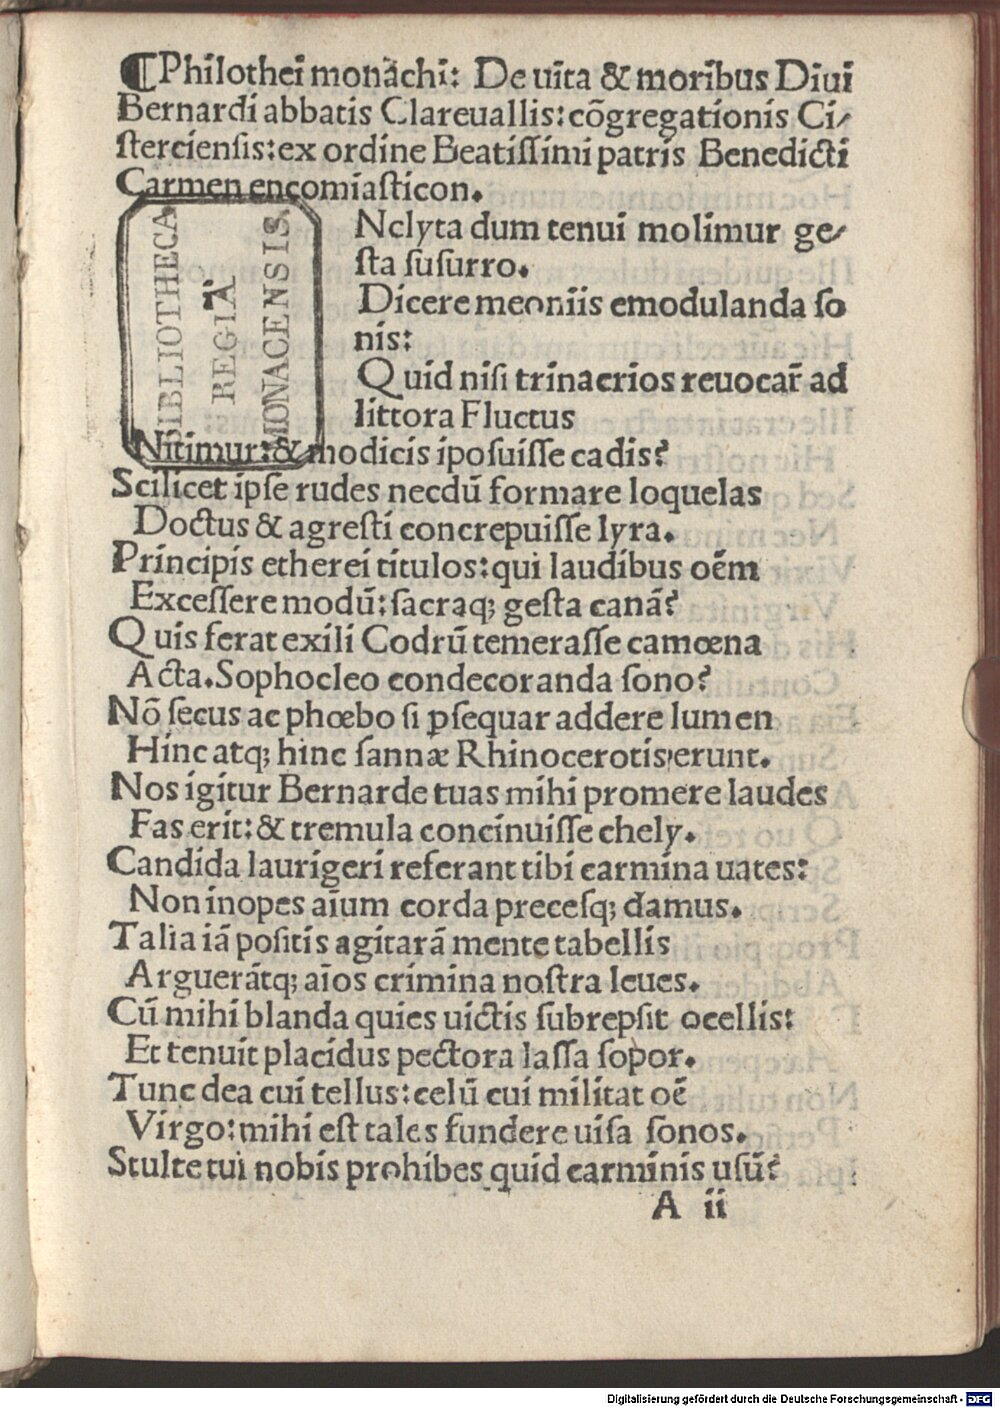 ¶Philothei monachi: De uita & moribus Diui
Bernardi abbatis Clareuallis: cõgregationis Ci/
ſtercienſis: ex ordine Beatiſſimi patris Benedicti
Carmen encomiaſticon.
BIBLIOTHECA
REGIA
MONACENSIS.
Nclyta dum tenui molimur ge/
ſta ſuſurro.
Dicere meoniis emodulanda ſo
nis:
Quid niſi trinacrios reuocar̃ ad
littora Fluctus
Nitimur: & modicis ipoſuiſſe cadis?
Scilicet ipſe rudes necdũ formare loquelas
Doctus & agreſti concrepuiſſe lyra.
Principis etherei titulos: qui laudibus oẽm
Exceſſere modũ: ſacraq; geſta canã?
Quis ferat exili Codrũ temeraſſe camœna
Acta. Sophocleo condecoranda ſono?
Nõ ſecus ac phœbo ſi ꝑſequar addere lumen
Hinc atq; hinc ſannæ Rhinocerotis erunt.
Nos igitur Bernarde tuas mihi promere laudes
Fas erit: & tremula concinuiſſe chely.
Candida laurigeri referant tibi carmina uates:
Non inopes aĩum corda preceſq; damus.
Talia iã poſitis agitarã mente tabellis
Arguerãtq; aĩos crimina noſtra leues.
Cũ mihi blanda quies uictis ſubrepſit ocellis:
Et tenuit placidus pectora laſſa ſopor.
Tunc dea cui tellus: celũ cui militat oẽ
Virgo: mihi eſt tales fundere uiſa ſonos.
Stulte tui nobis prohibes quid carminis uſũ?
A ii
Digitalisierung gefördert durch die Deutsche Forschungsgemeinschaft - DFG